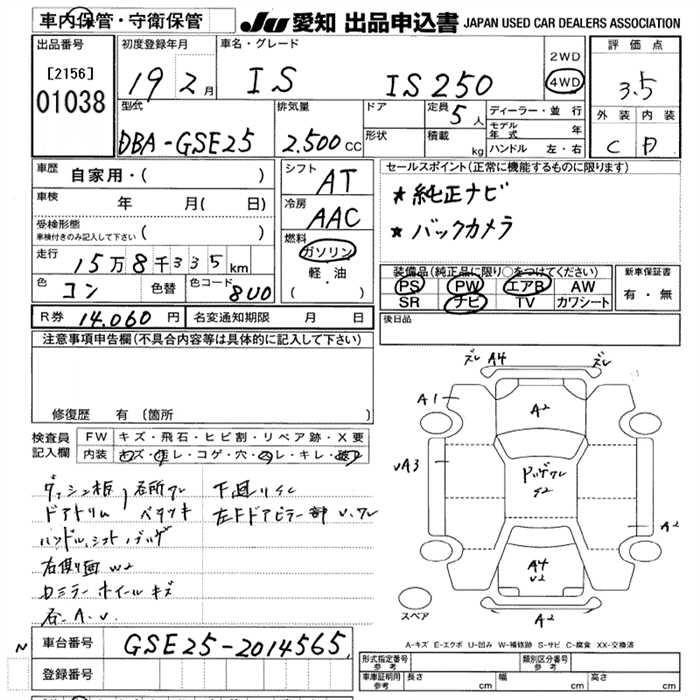 車内保管・守衛保管
JU 愛知 出品申込書 JAPAN USED CAR DEALERS ASSOCIATION
出品番号
[2156]
01038
初度登録年月
19 2月
車名・グレード
IS IS250
2WD
4WD
評価点
3.5
外装 内装
C
型式
DBA-GSE25
排気量
2,500 CC
ドア
形状
定員 5人
積載 kg
ディーラー・並行
モデル年式 年
ハンドル 左・右
車歴 自家用・( )
車検 年 月( 日)
受検形態
車検付きのみ記入して下さい ( )
走行 15万8千335km
色 コン 色替 色コード 8U0
シフト AT
冷房 AAC
燃料
ガソリン
軽・油
( ・ )
セールスポイント(正常に機能するものに限ります)
★純正ナビ
★バックカメラ
装備品(純正品に限り○をつけてください)
PS PW エアB AW
SR ナビ TV カワシート
新車保証書
有・無
R券 14,060円 名変通知期限 月 日
後日品
注意事項申告欄(不具合内容等は具体的に記入して下さい)
修復歴 有(箇所 )
検査員記入欄
FW キズ・飛石・ヒビ割・リペア跡・X要
内装 キズ・コゲ・穴・キレ
ダッシュ板
ドアトリム ベタツキ
ハンドル、シフト
右側面 W2
ドミラー ホイールキズ
右A.U.
左F ドアピラー部
ズレ A4 ズレ
A1
A2
UA3
A2
A4
U2
A2
スペア
A-キズ E-エクボ U-凹み W-補修跡 S-サビ C-腐食 XX-交換済
車台番号 GSE25-2014565
登録番号
形式指定番号 参考
類別区分番号 参考
車庫証明用 参考 長さ cm 幅 cm 高さ cm